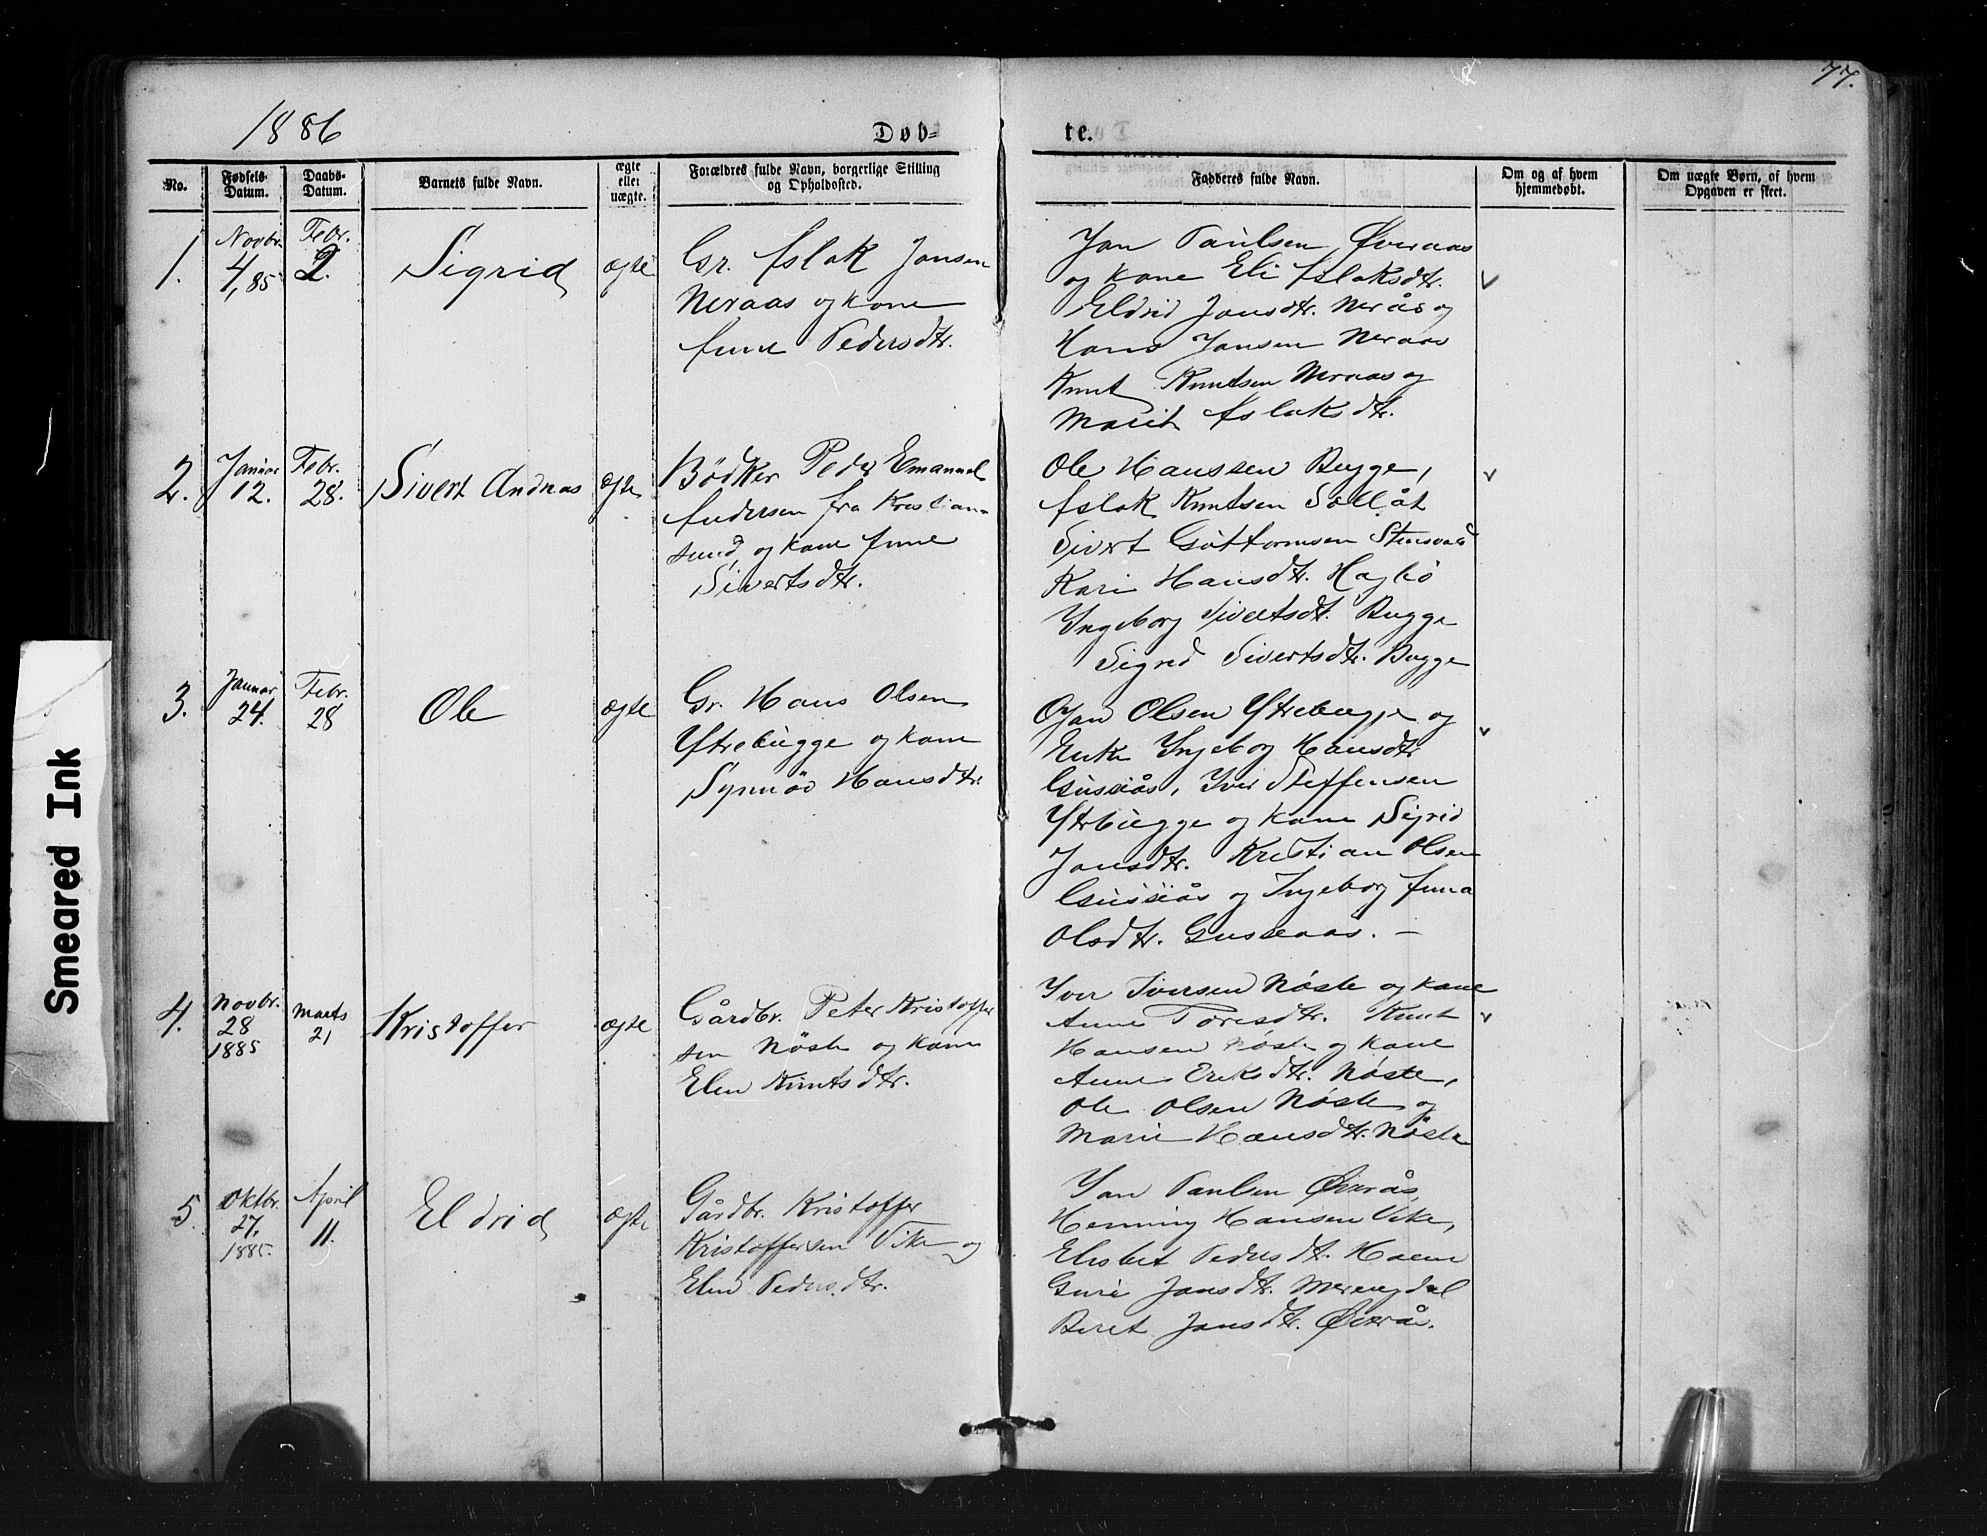 77.
1886
Døb-
te.
No.
Fødsels-
Datum.
Daabs-
Datum.
Barnets fulde Navn.
ægte
eller
uægte.
Forældres fulde Navn, borgerlige Stilling
og Opholdssted.
Fadderes fulde Navn.
Om og af hvem
hjemmedøbt.
Om uægte Børn, af hvem
Opgaven er skeet.
1.
Novbr.
4, 85
Febr.
2.
Sigrid
ægte
Gr. Aslak Jonsen
Neraas og kone
Anne Pedersdtr.
Jon Paulsen Øveraas
og kone Eli Aslaksdtr.
Eldrid Jonsdtr. Nerås og
Hans Jonsen Neraas
Knut Knutsen Neraas og
Marit Aslaksdtr.
2.
Januar
12.
Febr.
28.
Sivert Andreas
ægte
Bødker Peder Emanuel
Andersen fra Kristian-
sund, og kone Anne
Sivertsdtr.
Ole Hanssen Bugge,
Aslak Knutsen Sollåt
Sivert Guttormsen
Kari Hansdtr. Hagbö
Ingeborg Sivertsdt. Bugge
Sigrid Sivertsdtr. Bugge
3.
Januar
24.
Febr.
28
Ole
ægte
Gr. Hans Olsen
Ytrebugge og kone
Synnöv Hansdtr.
Jon Olsen Ytrebugge og
Enke Ingeborg Hansdtr
Gussiås, Iver Steffensen
Ytrbugge og kone Sigrid
Jonsdtr. Kristian Olsen
Gussiås og Ingeborg Anna
Olsdtr. Gusseaas. —
4.
Novbr.
28
1885
Marts
21
Kristoffer
ægte
Gårdbr. Peter Kristoffer
sen Nöste og kone
Elen Knutsdtr.
Iver Iversen Nöste og kone
Anne Toresdtr. Knut
Hansen Nöste og kone
Anne Eriksdtr. Nöste,
Ole Olsen Nöste og
Marie Hansdtr. Nöste
5.
Oktbr.
27,
1885.
April
11.
Eldrid
ægte
Gårdbr. Kristoffer
Kristoffersen Vike og
Elen Pedersdtr.
Jon Paulsen Øverås,
Henning Hansen Vike,
Elisbet Pedersdt. Hoem
Guri Jonsdtr. Meringdal
Beret Jonsdtr. Øverås.
Smeared Ink